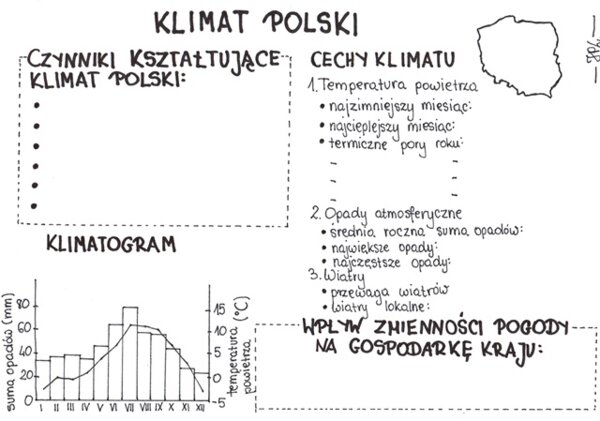 KLIMAT POLSKI
CZYNNIKI KSZTAŁTUJĄCE
KLIMAT POLSKI:
CECHY KLIMATU
1. Temperatura powietrza
• najzimniejszy miesiąc:
• najcieplejszy miesiąc:
• termiczne pory roku:
2. Opady atmosferyczne
• średnia roczna suma opadów:
• największe opady:
• najczęstsze opady:
3. Wiatry
• przewaga wiatrów
• wiatry lokalne:
KLIMATOGRAM
suma opadów (mm)
80
60
40
20
0
15
10
5
0
-5
temperatura (°C)
powietrza
I II III IV V VI VII VIII IX X XI XII
WPŁYW ZMIENNOŚCI POGODY
NA GOSPODARKĘ KRAJU: